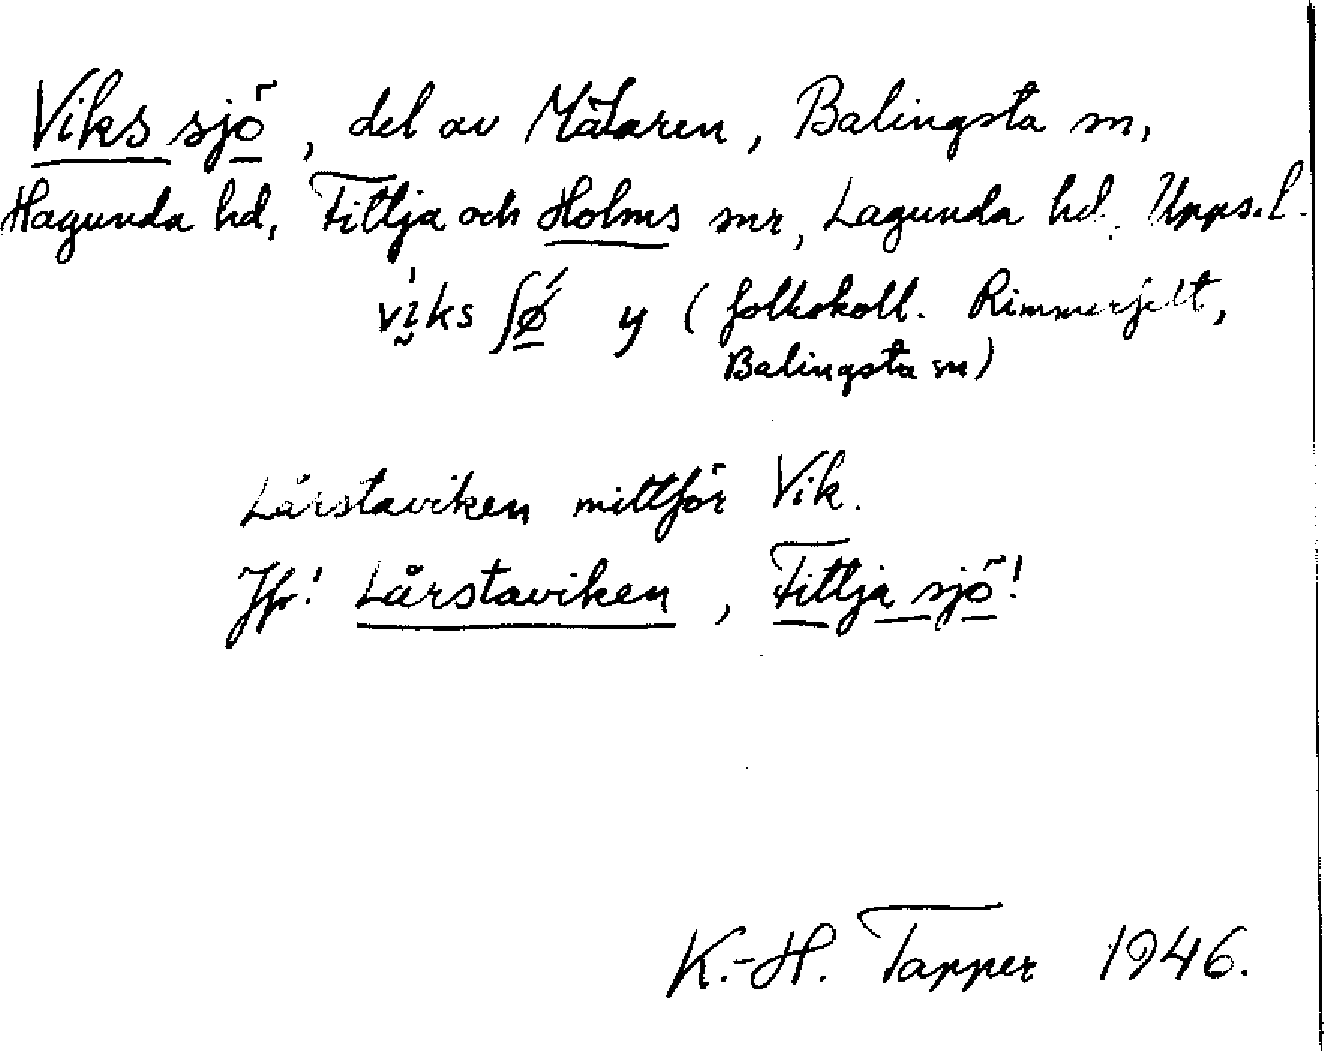 Viks sjö, del av Mälaren, Balingsta sn,
Hagunda hd, Fittja och Holms snr, Lagunda hd, Upps.l.
vḭks ʃǿ y (folkskoll. Rimmerfelt,
Balingsta sn)
Lårstaviken mittför Vik.
Jfr! Lårstaviken, Fittja sjö!
K.-H. Tapper 1946.